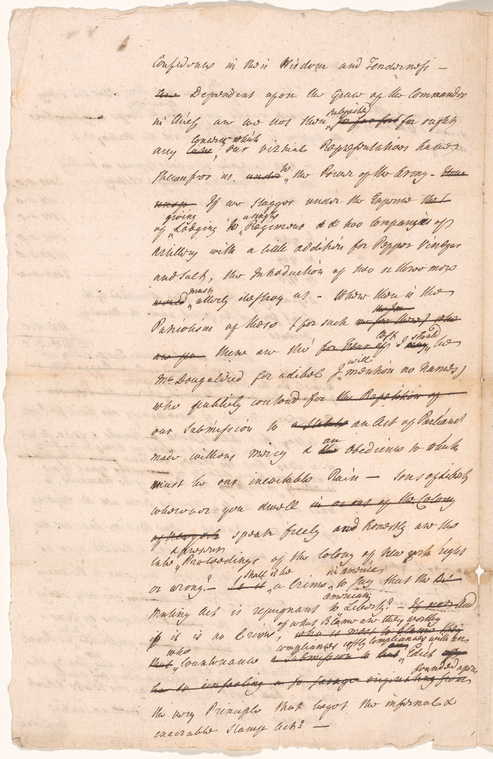 Confidence in their Wisdom and Tenderness –
Dependent upon the Grace of the Commander
in Cheif are we not then subjected for ought
any concern which our virtual Representatives have
shewn for us, to the Power of the Army –
If we stagger under the Expence
of giving Lodging to a single Regiment & two Companys of
Artillery with a little addition for Pepper Vinegar
and Salt, the Introduction of two or three more
must utterly destroy us – Where then is the
Patriotism of those (for such
there are tho' lest I should be
McDougalized for a libel I will mention no names)
who publicly contend for the Repetition of
our Submission to a an Act of Parliamt
made without Mercy & an Obedience to which
must be our inevitable Ruin – Sons of Liberty
wherever you dwell in or out of the Colony
of New York speak freely and honestly are the
late & present Proceedings of the Colony of New York right
or wrong? – Shall it be a Crime in America to say that the
Mutiny Act is repugnant to American Liberty? – And
if it is no Crime, of what Blame are they worthy
who countenance
founded upon
the very Principle that begot the infernal &
execrable Stamp Act? –